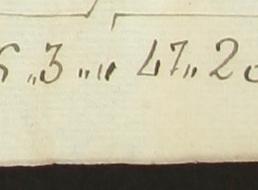 „3 „ „ 47„ 2